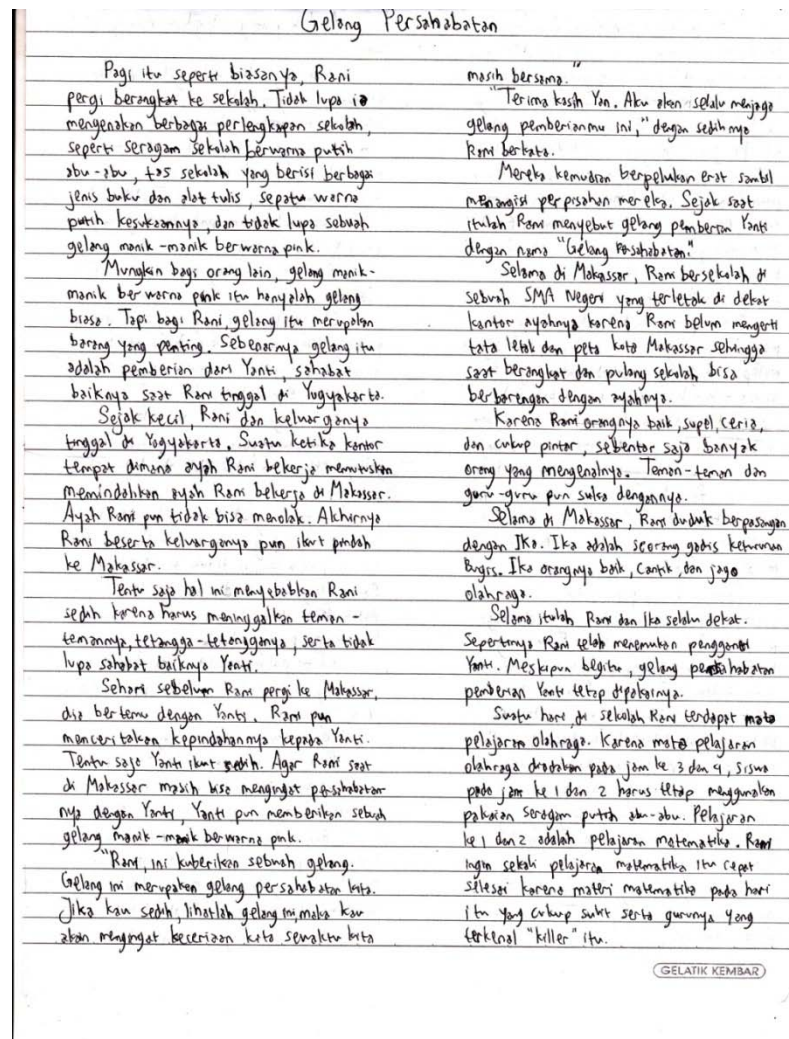 Gelang Persahabatan
Pagi itu seperti biasanya, Rani
pergi berangkat ke sekolah. Tidak lupa ia
mengenakan berbagai perlengkapan sekolah,
seperti seragam sekolah berwarna putih
abu-abu, tas sekolah yang berisi berbagai
jenis buku dan alat tulis, sepatu warna
putih kesukaannya, dan tidak lupa sebuah
gelang manik-manik berwarna pink.
Mungkin bagi orang lain, gelang manik-
manik berwarna pink itu hanyalah gelang
biasa. Tapi bagi Rani, gelang itu merupakan
barang yang penting. Sebenarnya gelang itu
adalah pemberian dari Yanti, sahabat
baiknya saat Rani tinggal di Yogyakarta.
Sejak kecil, Rani dan keluarganya
tinggal di Yogyakarta. Suatu ketika kantor
tempat dimana ayah Rani bekerja memutuskan
memindahkan ayah Rani bekerja di Makassar.
Ayah Rani pun tidak bisa menolak. Akhirnya
Rani beserta keluarganya pun ikut pindah
ke Makassar.
Tentu saja hal ini menyebabkan Rani
sedih karena harus meninggalkan teman-
temannya, tetangga-tetangganya, serta tidak
lupa sahabat baiknya Yanti.
Sehari sebelum Rani pergi ke Makassar,
dia bertemu dengan Yanti. Rani pun
menceritakan kepindahannya kepada Yanti.
Tentu saja Yanti ikut sedih. Agar Rani saat
di Makassar masih bisa mengingat persahabatan
nya dengan Yanti, Yanti pun memberikan sebuah
gelang manik-manik berwarna pink.
"Rani, ini kuberikan sebuah gelang.
Gelang ini merupakan gelang persahabatan kita.
Jika kau sedih, lihatlah gelang ini, maka kau
akan mengingat keceriaan kita sewaktu kita
masih bersama."
"Terima kasih Yan. Aku akan selalu menjaga
gelang pemberianmu ini," dengan sedihnya
Rani berkata.
Mereka kemudian berpelukan erat sambil
menangisi perpisahan mereka. Sejak saat
itulah Rani menyebut gelang pemberian Yanti
dengan nama "Gelang Persahabatan."
Selama di Makassar, Rani bersekolah di
sebuah SMA Negeri yang terletak di dekat
kantor ayahnya karena Rani belum mengerti
tata letak dan peta kota Makassar sehingga
saat berangkat dan pulang sekolah bisa
berbarengan dengan ayahnya.
Karena Rani orangnya baik, supel, ceria,
dan cukup pintar, sebentar saja banyak
orang yang mengenalnya. Teman-teman dan
guru-guru pun suka dengannya.
Selama di Makassar, Rani duduk berpasangan
dengan Ika. Ika adalah seorang gadis keturunan
Bugis. Ika orangnya baik, cantik, dan jago
olahraga.
Selama itulah Rani dan Ika selalu dekat.
Sepertinya Rani telah menemukan pengganti
Yanti. Meskipun begitu, gelang persahabatan
pemberian Yanti tetap dipakainya.
Suatu hari, di sekolah Rani terdapat mata
pelajaran olahraga. Karena mata pelajaran
olahraga diadakan pada jam ke 3 dan 4, siswa
pada jam ke 1 dan 2 harus tetap menggunakan
pakaian seragam putih abu-abu. Pelajaran
ke 1 dan 2 adalah pelajaran matematika. Rani
ingin sekali pelajaran matematika itu cepat
selesai karena materi matematika pada hari
itu yang cukup sulit serta gurunya yang
terkenal "killer" itu.
GELATIK KEMBAR